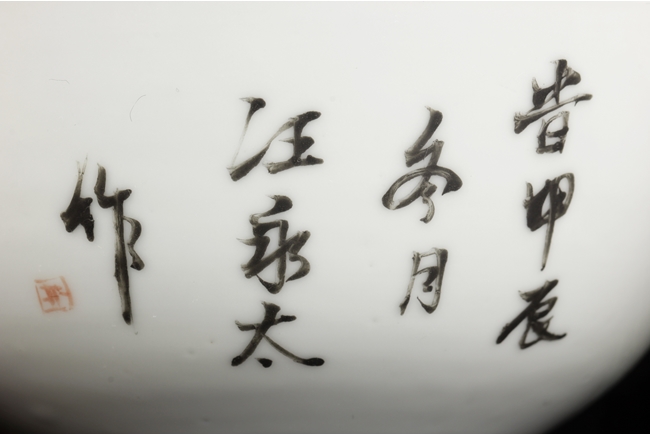 旹甲辰
冬月
汪永太
作